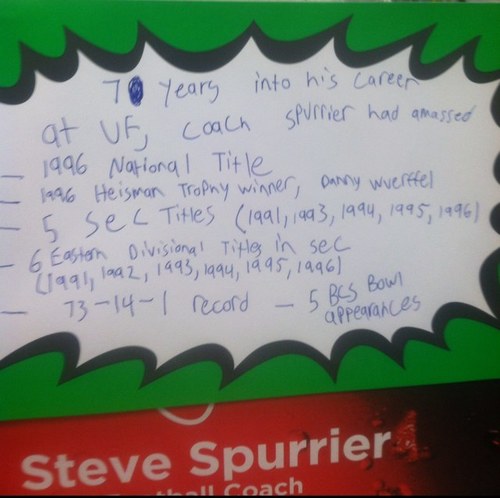 7 years into his career
at UF, coach Spurrier had amassed
- 1996 National Title
- 1996 Heisman Trophy winner, Danny Wuerffel
- 5 SEC Titles (1991, 1993, 1994, 1995, 1996)
- 6 Eastern Divisional Titles in SEC
(1991, 1992, 1993, 1994, 1995, 1996)
- 73-14-1 record - 5 BCS Bowl
appearances
Steve Spurrier
Football Coach